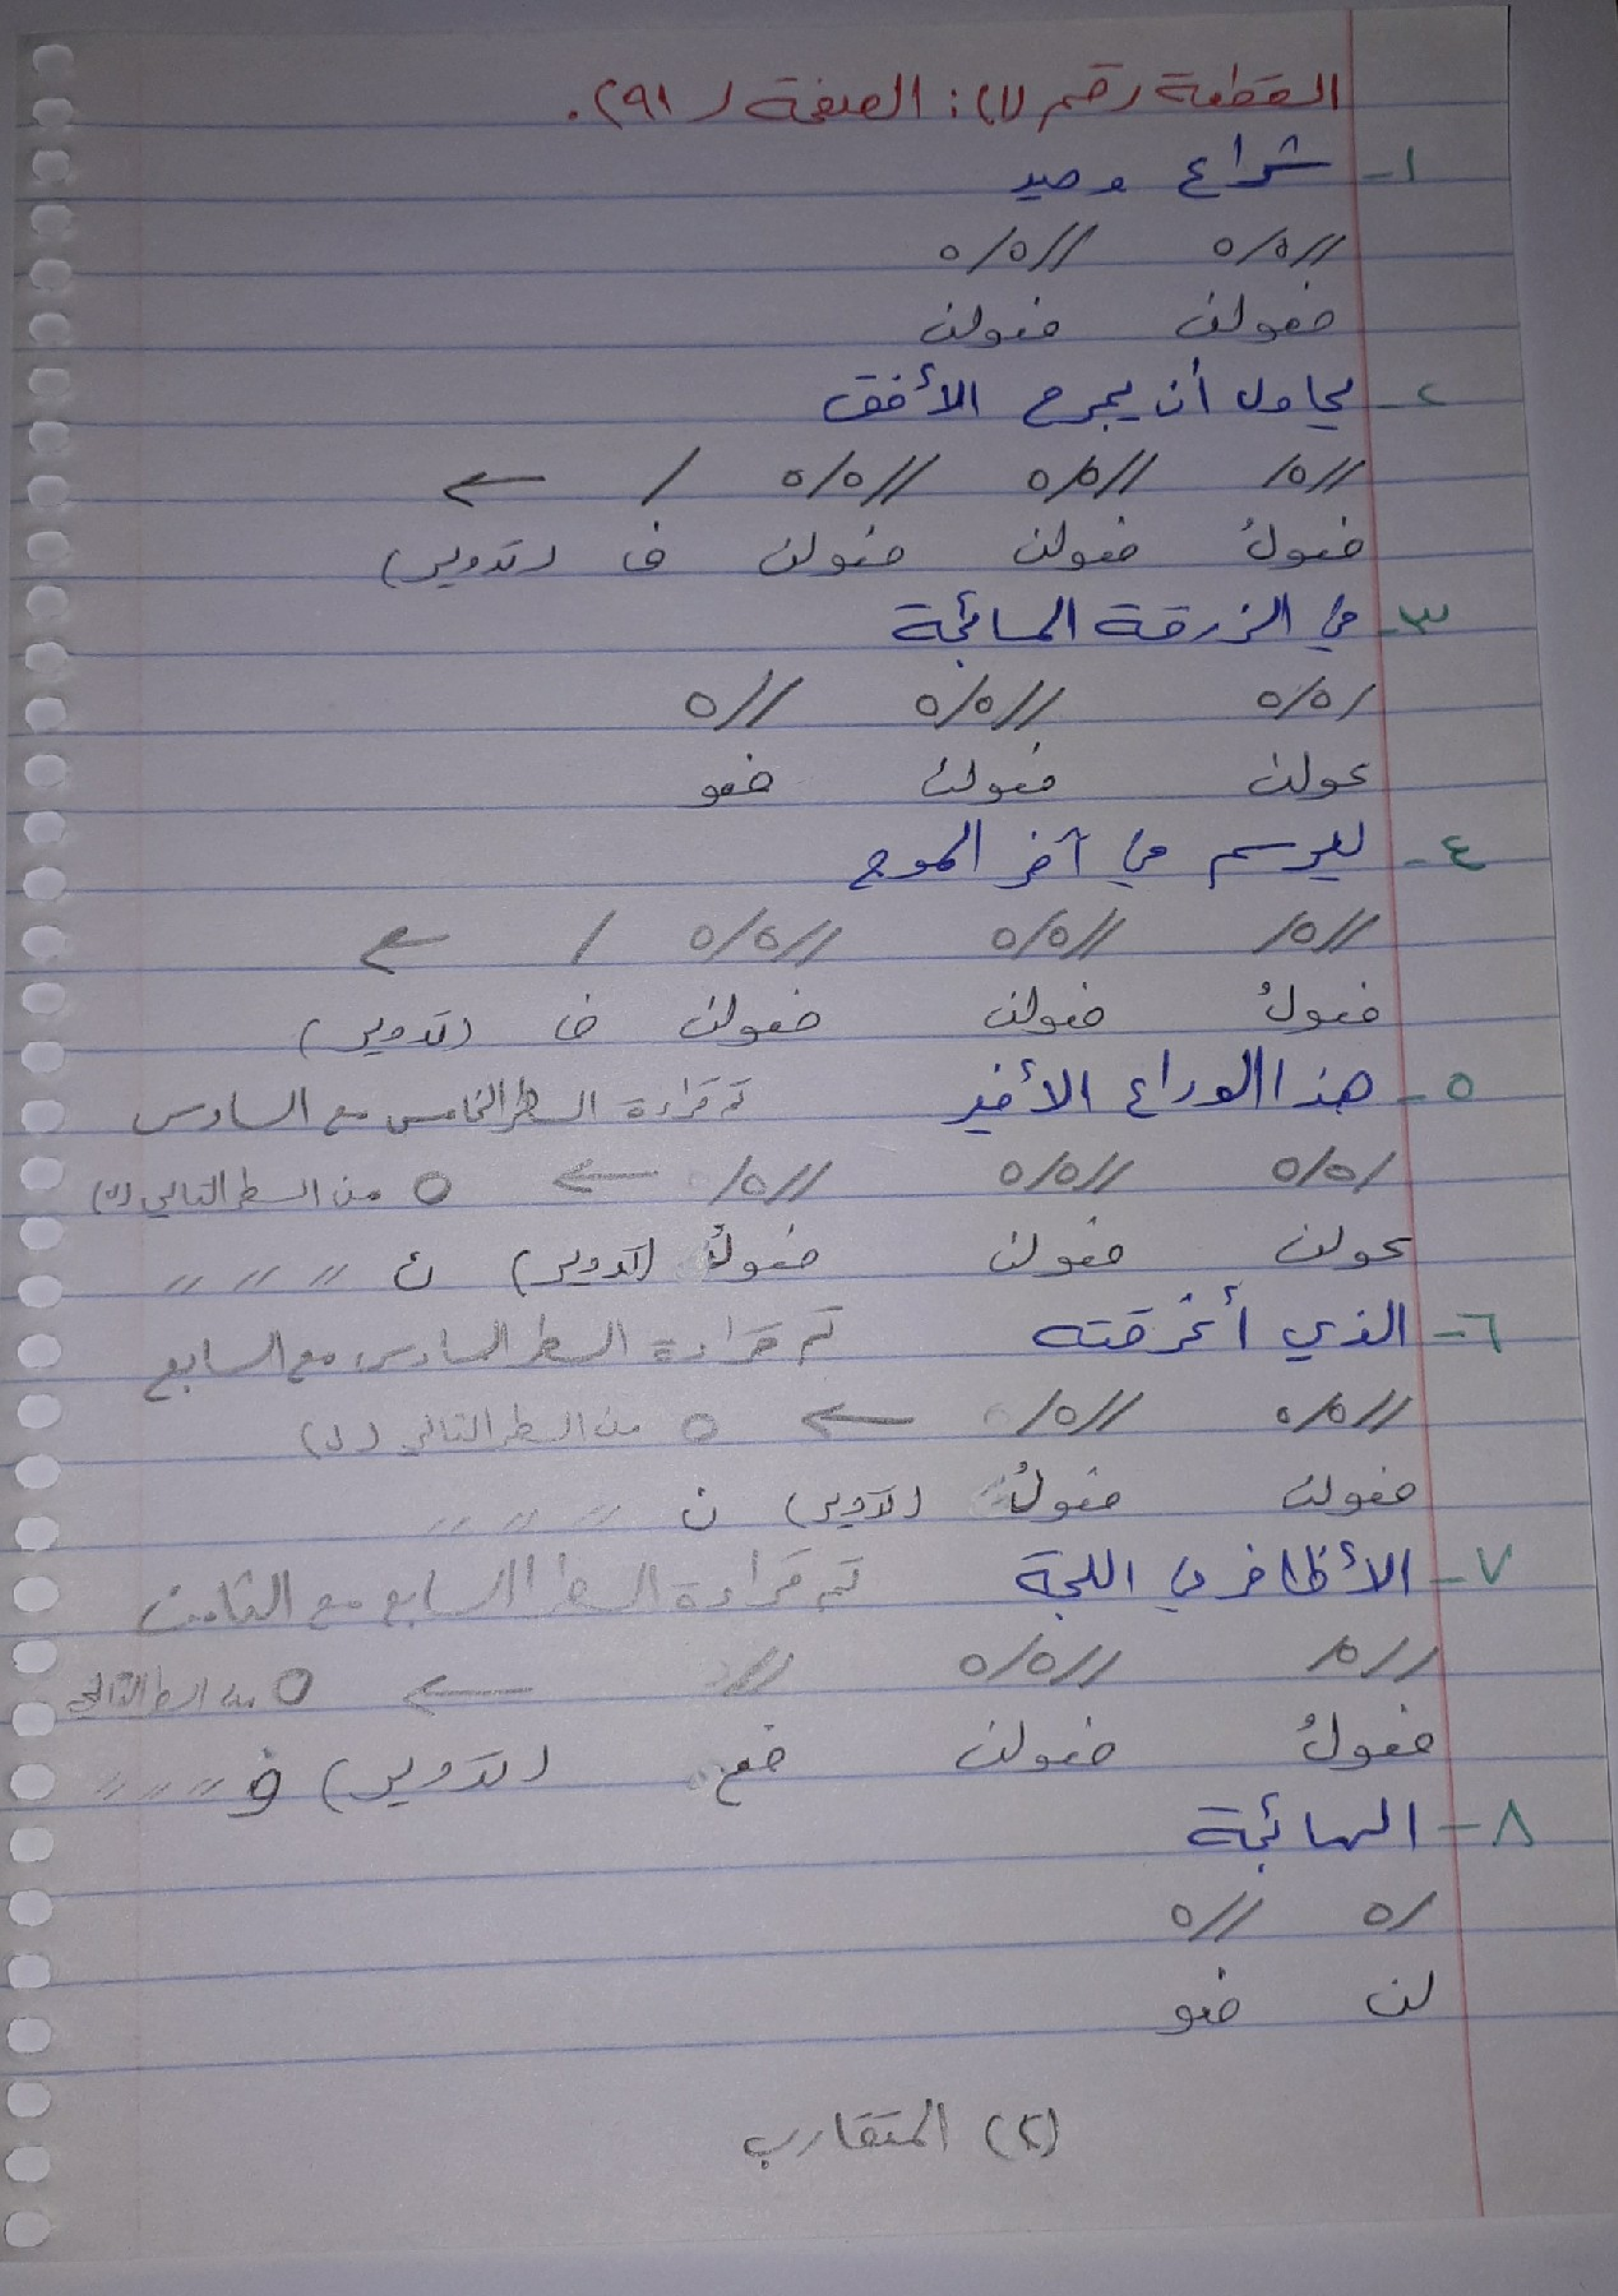 القطعة رقم (١): الصفحة (٩١).
١- شراع وحيد
//٥/٥ //٥/٥
فعولن فعولن
٢- يحاول أن يجرح الأفق
//٥/ //٥/٥ //٥/٥ / ←
فعولُ فعولن فعولن ف (تدوير)
٣- في الزرقة السائجة
/٥/٥ //٥/٥ //٥
عولن فعولن فعو
٤- ليرسم في آخر الموج
//٥/ //٥/٥ //٥/٥ / ←
فعولُ فعولن فعولن ف (تدوير)
٥- هذا الوداع الأخير تم قراءة السطر الخامس مع السادس
/٥/٥ //٥/٥ //٥/ ← ٥ من السطر التالي (ل)
عولن فعولن فعولُ (تدوير) ن " " "
٦- الذي أغرقته تم قراءة السطر السادس مع السابع
//٥/٥ //٥/ ← ٥ من السطر التالي (ل)
فعولن فعولُ (تدوير) ن " " "
٧- الأظافر في اللجة تم قراءة السطر السابع مع الثامن
//٥/ //٥/٥ // ← ٥ من السطر التالي
فعولُ فعولن فع (تدوير) و " " "
٨- الهائجة
/٥ //٥
لن فعو
(٢) المتقارب